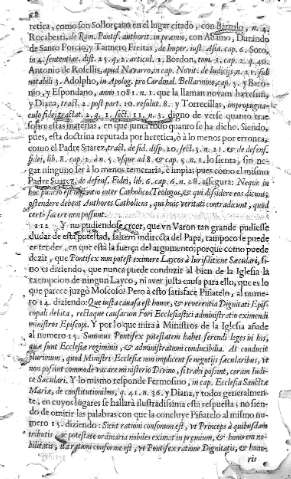 retica, como son Sollorçano en el lugar citado, con Bartulo, n. 4.
Rocaberti, de Rom. Pontif. authorit. in prœmio, con Adamo, Durando
de Santo Porciano, y Tannero Freitas, de Imper. Asia. cap. 6. Soto,
in 4. sententiar. dist. 25. q. 2. articul. 1. Bordon, tom. 2. cap. 2. q. 40.
Antonio de Rosellis, apud Navarro, in cap. Novit. de Iudicijs, n.
notabili 3. Adolpho, in Apolog. pro Cardinal. Bellarmino, pag. 5. y Baro-
nio, y Espondano, anno 1081. n. 1. que la llaman novam hæresim,
y Diana, tract. 2. post part. 10. resolut. 8. y Torrecillas, impropugna-
culo fidei, tractat. 2. q. 1. sect. 11. n. 3. digno de verse quanto trae
sobre estas materias, en que junta todo quanto se ha dicho. Siendo,
pues, esta doctrina reputada por heretica, ò à lo menos por erronea,
como el Padre Suarez, tract. de fide, disp. 20. sect. 3. n. 21. & de defens.
fidei, lib. 6. cap. 3. dn 5. vsque ad 8. & cap. 5. n. 1. lo sienta, sin ne-
gar ninguno ser à lo menos temeraria, è impia; pues como el mismo
Padre Suarez, de defens. Fidei, lib. 6. cap. 6. n. 28. assegura: Neque in
hoc puncto est dissensio inter Catholicos Teologos, & qui dissidere nos dicunt,
ostendere debeat Authores Catholicos, qui huic veritati contradicunt, quod
certè facere non possunt.
112 Y no pudiendose creer, que vn Varon tan grande pudiesse
dudar de esta potestad, saltem indirecta del Papa, tampoco se puede
entender, en que està la fuerça del argumento; porque como puede
dezir, que Pontifex non potest eximere Laycos à Iurisditione Sæculari, si-
no es diziendo, que nunca puede conducir al bien de la Iglesia la
exempcion de ningun Layco, ni aver justa causa para ello, que es lo
que parece pagò Moscolo? Pero à esto satisface Piñatelo, al nume-
ro 14. diziendo: Que iusta causa est honor, & reverentia Dignitati Epis-
copali debita, rectaque causarum Fori Ecclesiastici administratio eximendi
ministros Episcopi. Y por lo que mira à Ministros de la Iglesia añade
al numero 15. Summus Pontifex potestatem habet ferendi leges in his,
quæ sunt Ecclesiæ regimini, & administrationi conducibilia. At conducit
plurimum, quod Ministri Ecclesiæ non implicent se negotijs sæcularibus, &
non possint commodè vacare ministerio Divino, si trahi possent, coram Iudi-
ce Sæculari. Y lo mismo responde Fermosino, in cap. Ecclesia Sanctæ
Mariæ, de constitutionibus, q. 41. n. 36. y Diana, y todos generalmen-
te, en cuyos lugares se hallarà ilustradissima esta respuesta; no sien-
do de omitir las palabras con que la concluye Piñatelo al mismo nu-
mero 15. diziendo: Sicut rationi conforme est, vt Princeps à quibusdam
tributis potestate ordinaria milites eximat in premium, & honorem no-
bilitatis, ita rationi conforme est, vt Pontifex ratione Dignitatis, & hono-
ris